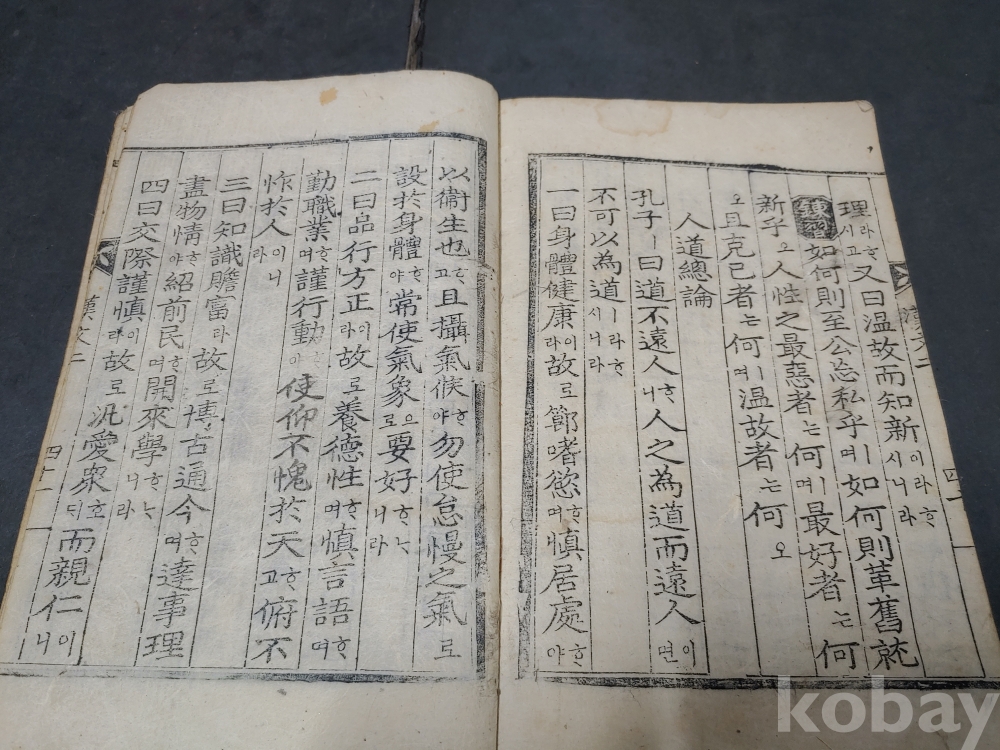 理라ᄒᆞ시고又曰溫故而知新이라ᄒᆞ시니라
練習如何則至公忘私乎ㅣ며如何則革舊就
新乎오人性之最惡者는何ㅣ며最好者는何
오且克己者는何ㅣ며溫故者는何오
人道總論
孔子ㅣ曰道不遠人ᄒᆞ니人之為道而遠人이면
不可以為道ㅣ라ᄒᆞ시니라
一曰身體健康이라故로節嗜慾ᄒᆞ며愼居處ᄒᆞ야
以衛生也ᄒᆞ고且攝氣候ᄒᆞ야勿使怠慢之氣로
設於身體ᄒᆞ야常使氣象으로要好ᄒᆞᄂᆞ니라
二曰品行方正이라故로養德性ᄒᆞ며愼言語ᄒᆞ며
勤職業ᄒᆞ며謹行動ᄒᆞ야使仰不愧於天ᄒᆞ고俯不
怍於人이니라
三曰知識贍富라故로博古通今ᄒᆞ며達事理
盡物情ᄒᆞ야紹前民ᄒᆞ며開來學ᄒᆞᄂᆞ니라
四曰交際謹愼이라故로汎愛衆호ᄃᆡ而親仁이니
漢文二 四十一
kobay